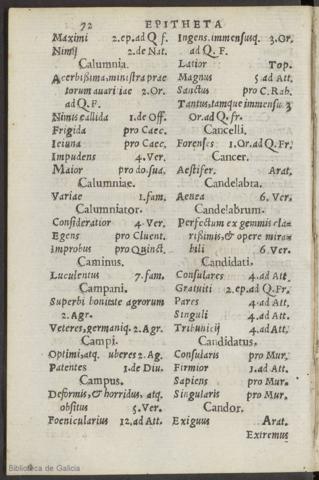 72 EPITHETA
Maximi 2.ep.ad Q f.
Nimij 2.de Nat.
Calumnia.
Acerbissima, ministra prae
torum auaritiae 2.Or.
ad Q.F.
Nimis callida 1.de Off.
Frigida pro Caec.
Ieiuna pro Caec.
Impudens 4.Ver.
Maior pro do.sua.
Calumniae.
Variae 1.fam.
Calumniator.
Consideratior 4.Ver.
Egens pro Cluent.
Improbus pro Quinct.
Caminus.
Luculentus 7.fam.
Campani.
Superbi bonitate agrorum
2.Agr.
Veteres, germaniq. 2.Agr.
Campi.
Optimi, atq. uberes 2.Ag.
Patentes 1.de Diu.
Campus.
Deformis, & horridus, atq.
obsitus 5.Ver.
Foenicularius 12.ad Att.
Ingens. immensusq. 3.Or.
ad Q.F.
Latior Top.
Magnus 5 ad Att.
Sanctus pro C.Rab.
Tantus, tamque immensus 3
Or.ad Q.fr.
Cancelli.
Forenses 1.Or.ad Q.Fr.
Cancer.
Aestifer. Arat.
Candelabra.
Aenea 6.Ver.
Candelabrum.
Perfectum ex gemmis cla-
rissimis, & opere mira-
bili 6.Ver.
Candidati.
Consulares 4.ad Att.
Gratuiti 2.ep.ad Q.Fr.
Pares 4.ad Att.
Singuli 4.ad Att.
Tribunicij 4.ad Att.
Candidatus.
Consularis pro Mur.
Firmior 1.ad Att.
Sapiens pro Mur.
Singularis pro Mur.
Candor.
Exiguus Arat.
Extremus
Biblioteca de Galicia